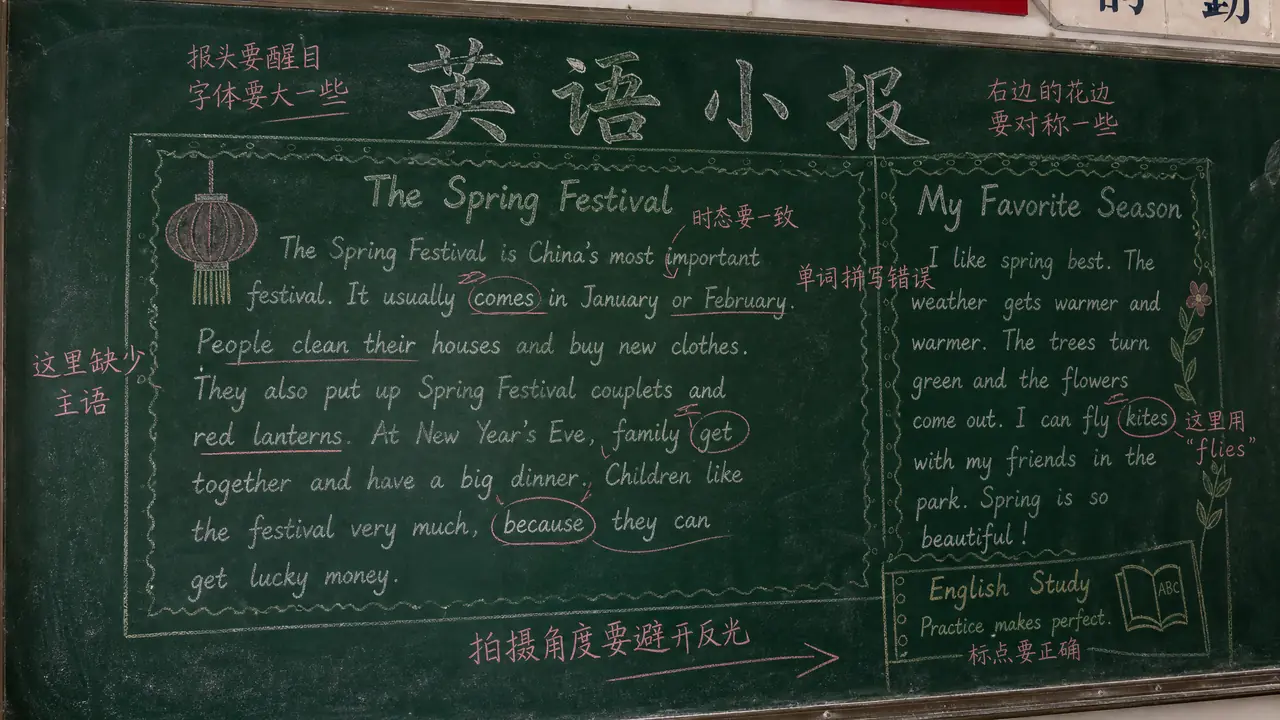 的 勤
报头要醒目
字体要大一些
英语小报
右边的花边
要对称一些
The Spring Festival
时态要一致
The Spring Festival is China's most important
festival. It usually comes in January or February.
单词拼写错误
People clean their houses and buy new clothes.
这里缺少
主语
They also put up Spring Festival couplets and
red lanterns. At New Year's Eve, family get
together and have a big dinner. Children like
the festival very much, because they can
get lucky money.
My Favorite Season
I like spring best. The
weather gets warmer and
warmer. The trees turn
green and the flowers
come out. I can fly kites
这里用
"flies"
with my friends in the
park. Spring is so
beautiful!
English Study
Practice makes perfect.
ABC
标点要正确
拍摄角度要避开反光